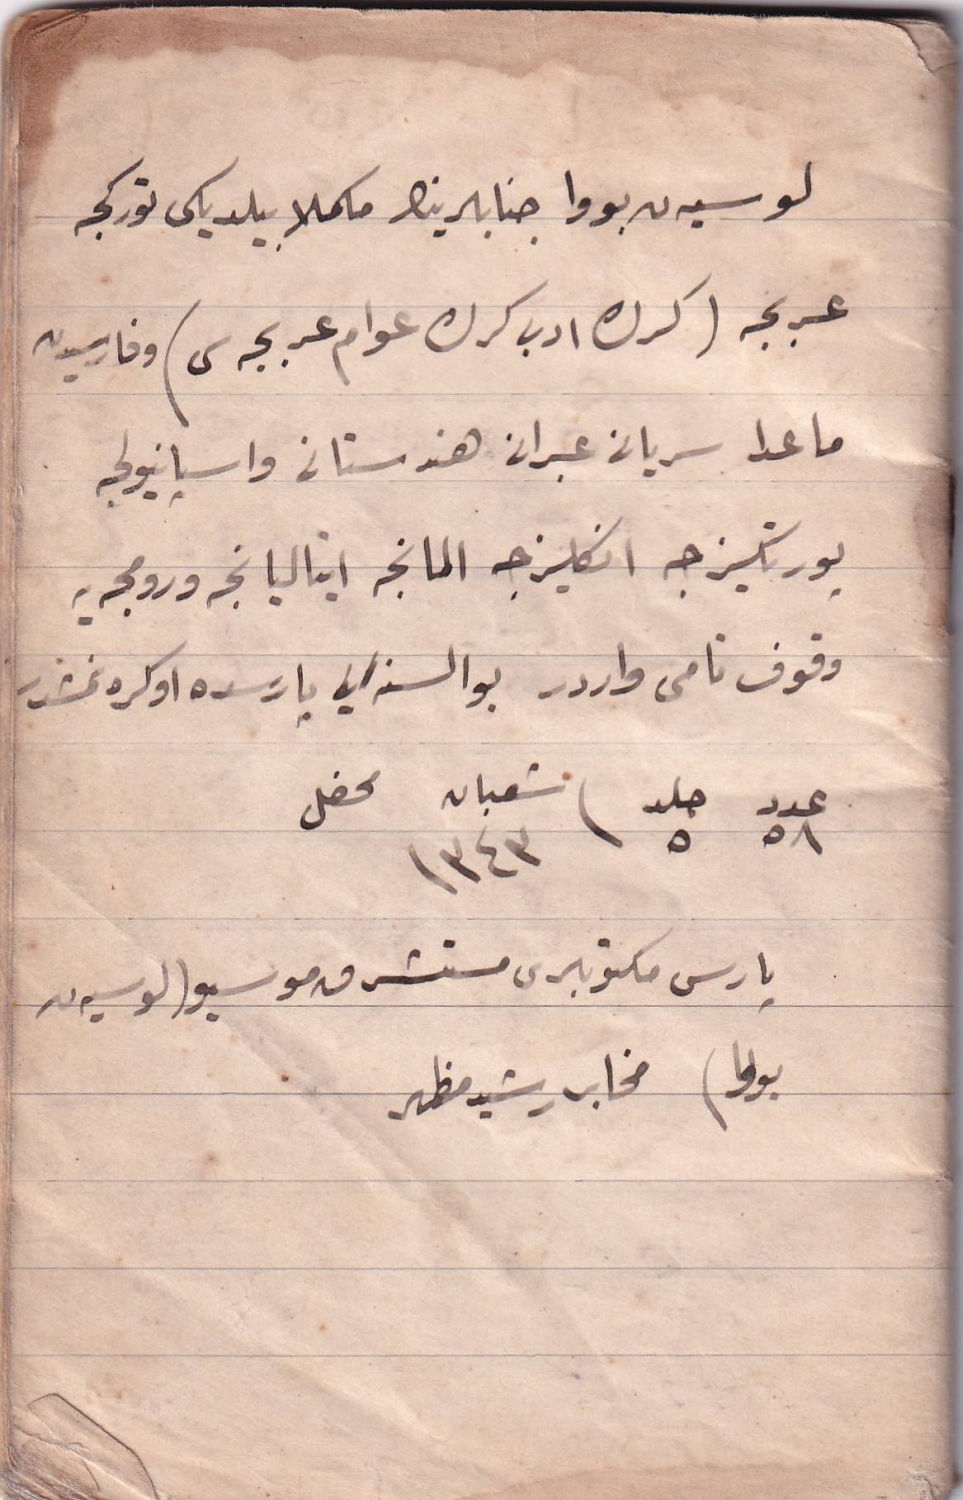 لوسیه ن بووا جنابلرینك مكملا بیلدیكی توركجه
عربجه (كرك ادب كرك عوام عربجه سی) وفارسیدن
ماعدا سریانی عبرانی هندستانی واسپانیولجه
پورتكیزجه انكلیزجه المانجه ایتالیانجه ورومجه یه
وقوف تامی واردر بو السنه یی پارسده اوكره نمشدر
عدد جلد ) شعبان محفل
٥٨ ٥ ١٣٤٣
پارس مكتوبلری مستشرق موسیو (لوسیه ن
بووا) مخابر رشید مظهر